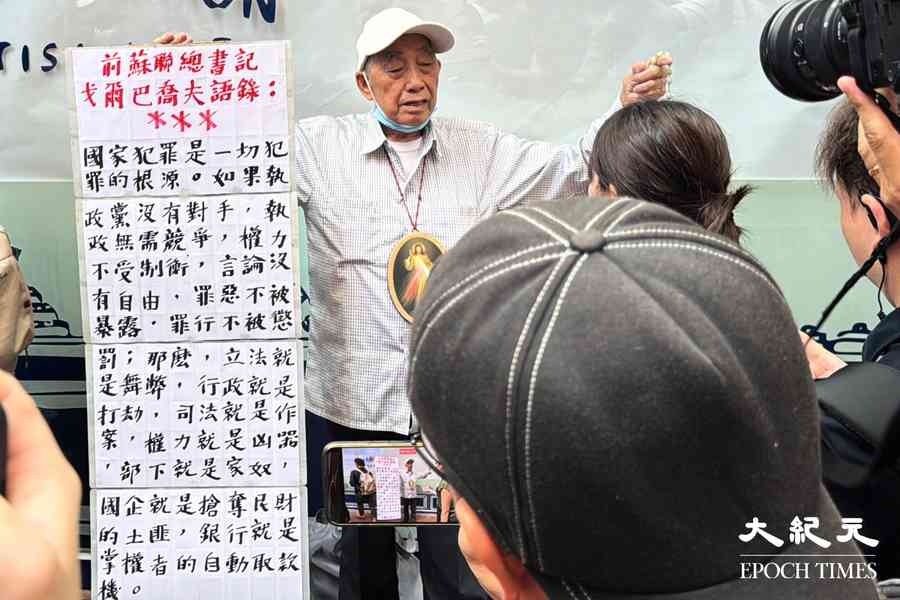 ON
前蘇聯總書記
戈爾巴喬夫語錄：
***
國家犯罪是一切犯
罪的根源。如果執
政黨沒有對手，執
政無需競爭，權力
不受制衡，言論沒
有自由，罪惡不被
暴露，罪行不被懲
罰；那麼，立法就
是舞弊，行政就是
打劫，司法就是作
案，權力就是凶器
，部下就是家奴，
國企就是搶奪民財
的土匪，銀行就是
掌權者的自動取款
機。
大紀元
EPOCH TIMES